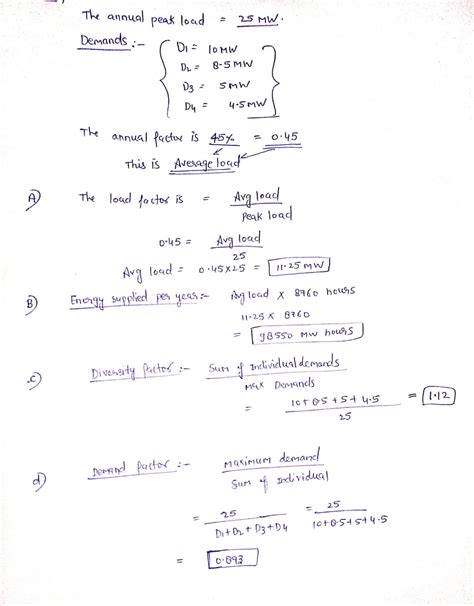 The annual peak load = 25 MW.
Demands :-
D1 = 10MW
D2 = 8.5MW
D3 = 5MW
D4 = 4.5MW
The annual factor is 45% = 0.45
This is Average load
A) The load factor is = Avg load / Peak load
0.45 = Avg load / 25
Avg load = 0.45x25 = 11.25 MW
B) Energy supplied per year:- Avg load x 8760 hours
11.25 x 8760
= 98550 MW hours
c) Diversity factor :- Sum of Individual demands / Max Demands
= 10+8.5+5+4.5 / 25 = 1.12
d) Demand factor :- maximum demand / Sum of Individual
= 25 / D1+D2+D3+D4 = 25 / 10+8.5+5+4.5
= 0.893